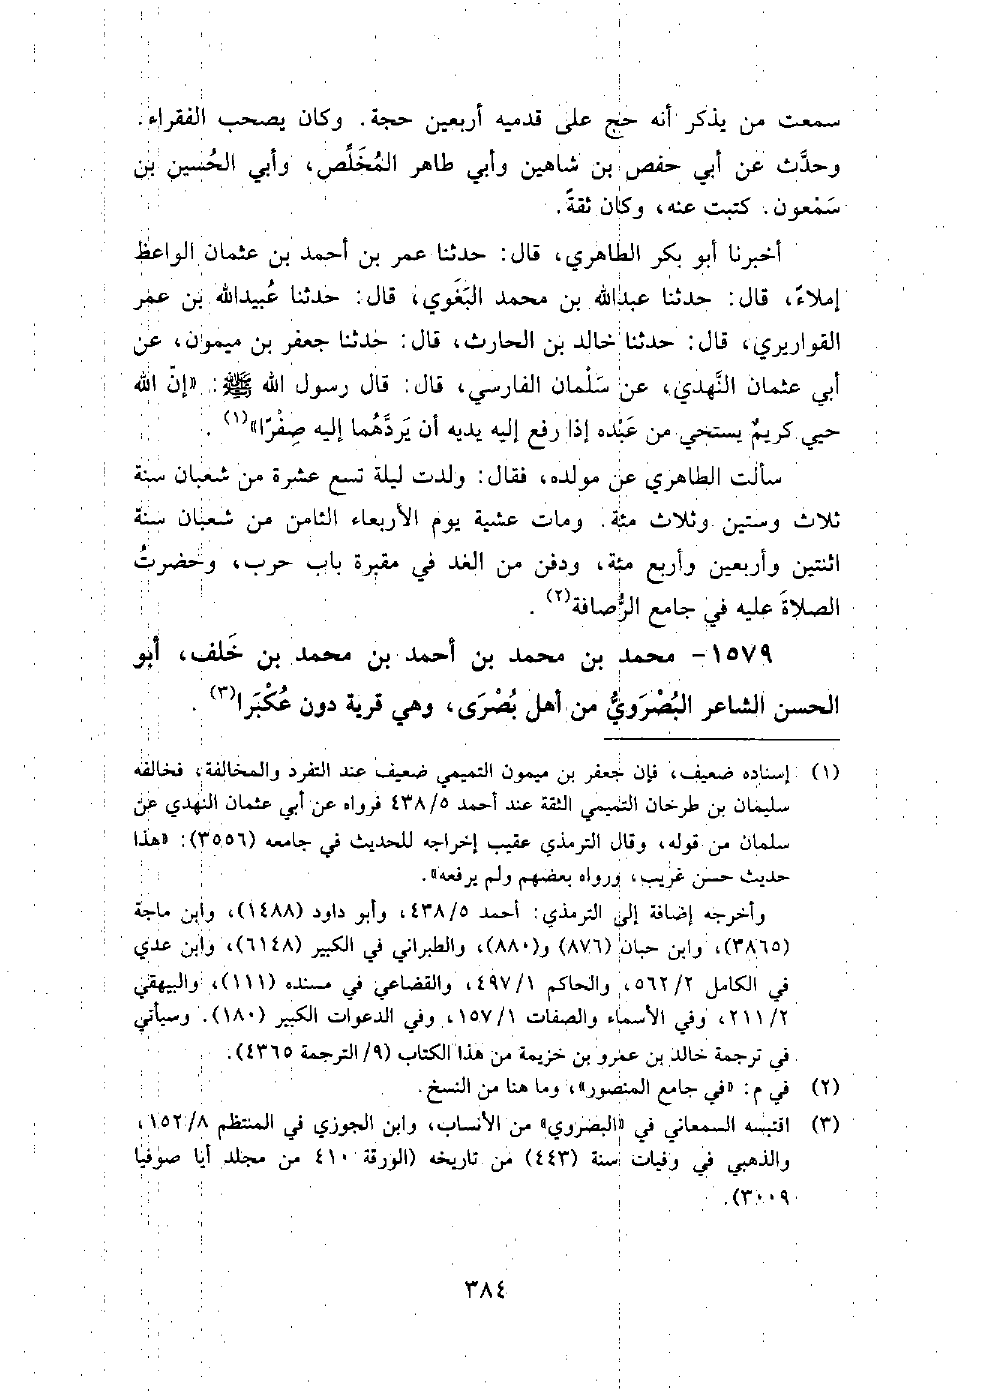 سمعت من يذكر أنه حج على قدميه أربعين حجة. وكان يصحب الفقراء.
وحدَّث عن أبي حفص بن شاهين وأبي طاهر المُخَلِّص، وأبي الحُسين بن
سَمْعون. كتبت عنه، وكان ثقةً.
أخبرنا أبو بكر الطاهري، قال: حدثنا عمر بن أحمد بن عثمان الواعظ
إملاءً، قال: حدثنا عبدالله بن محمد البَغَوي، قال: حدثنا عُبيدالله بن عمر
القواريري، قال: حدثنا خالد بن الحارث، قال: حدثنا جعفر بن ميمون، عن
أبي عثمان النَّهدي، عن سَلْمان الفارسي، قال: قال رسول الله ﷺ: «إنّ الله
حيي كريمٌ يستحي من عَبْده إذا رفع إليه يديه أن يَردَّهُما إليه صِفْرًا»(١) .
سألت الطاهري عن مولده، فقال: ولدت ليلة تسع عشرة من شعبان سنة
ثلاث وستين وثلاث مئة. ومات عشية يوم الأربعاء الثامن من شعبان سنة
اثنتين وأربعين وأربع مئة، ودفن من الغد في مقبرة باب حرب، وحضرتُ
الصلاةَ عليه في جامع الرُّصافة(٢) .
١٥٧٩- محمد بن محمد بن أحمد بن محمد بن خَلف، أبو
الحسن الشاعر البُصْرَويُّ من أهل بُصْرَى، وهي قرية دون عُكْبَرا(٣) .
(١) إسناده ضعيف، فإن جعفر بن ميمون التميمي ضعيف عند التفرد والمخالفة، فخالفه
سليمان بن طرخان التميمي الثقة عند أحمد ٤٣٨/٥ فرواه عن أبي عثمان النهدي عن
سلمان من قوله، وقال الترمذي عقيب إخراجه للحديث في جامعه (٣٥٥٦): «هذا
حديث حسن غريب، ورواه بعضهم ولم يرفعه».
وأخرجه إضافة إلى الترمذي: أحمد ٤٣٨/٥، وأبو داود (١٤٨٨)، وابن ماجة
(٣٨٦٥)، وابن حبان (٨٧٦) و(٨٨٠)، والطبراني في الكبير (٦١٤٨)، وابن عدي
في الكامل ٥٦٢/٢، والحاكم ٤٩٧/١، والقضاعي في مسنده (١١١)، والبيهقي
٢١١/٢، وفي الأسماء والصفات ١٥٧/١، وفي الدعوات الكبير (١٨٠). وسيأتي
في ترجمة خالد بن عمرو بن خزيمة من هذا الكتاب (٩/ الترجمة ٤٣٦٥).
(٢) في م: «في جامع المنصور»، وما هنا من النسخ.
(٣) اقتبسه السمعاني في «البصروي» من الأنساب، وابن الجوزي في المنتظم ١٥٢/٨،
والذهبي في وفيات سنة (٤٤٣) من تاريخه (الورقة ٤١٠ من مجلد أيا صوفيا
٣٠٠٩).
٣٨٤